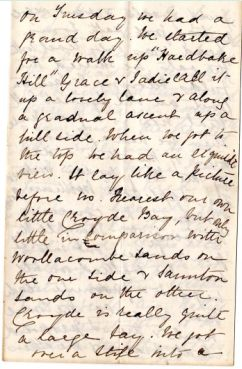 on Tuesday we had a
grand day. We started
for a walk up "Hardbake
Hill" Grace & Sadie call it
up a lovely lane & along
a gradual ascent up a
hill side. When we got to
the top we had an exquisite
view. It lay like a picture
before us. Nearest our own
little Croyde Bay, but only
little in comparison with
Woollacombe sands on
the one side & Saunton
Sands on the other.
Croyde is really quite
a large bay. We got
over a stile into a